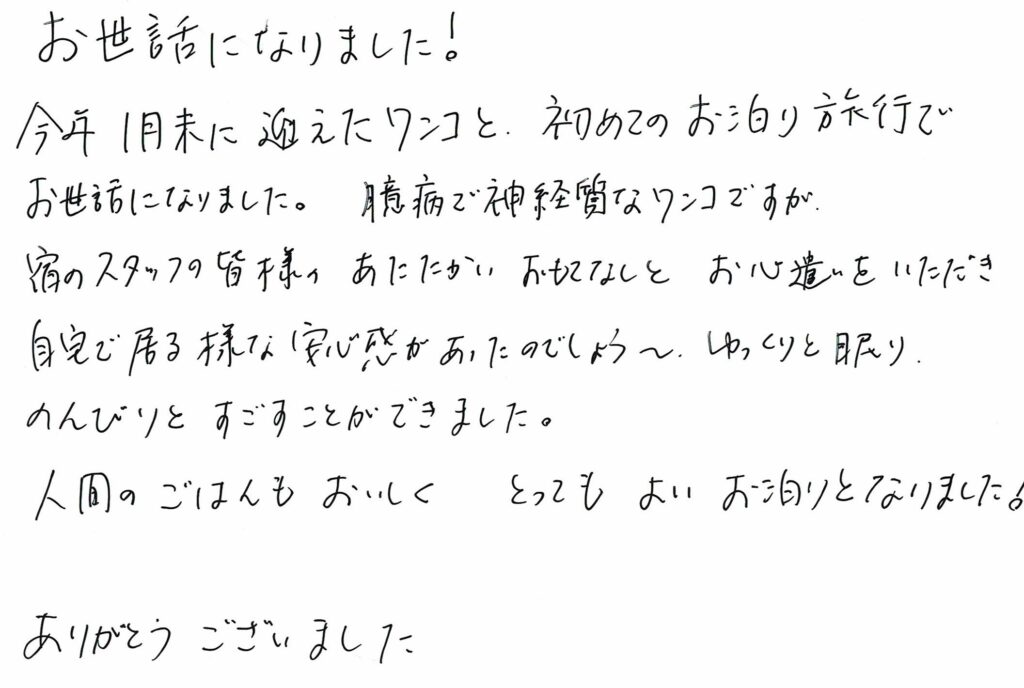 お世話になりました!
今年1月末に迎えたワンコと、初めてのお泊り旅行で
お世話になりました。 臆病で神経質なワンコですが、
宿のスタッフの皆様の あたたかい おもてなしと お心遣いを いただき
自宅で居る様な安心感があったのでしょう〜、ゆっくりと眠り、
のんびりと すごすことができました。
人間の ごはんも おいしく とっても よい お泊りとなりました!
ありがとう ございました